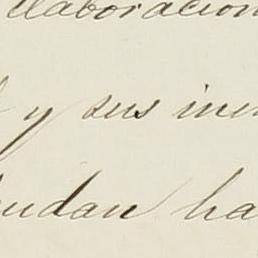 elaboracion
y sus in
udan ha